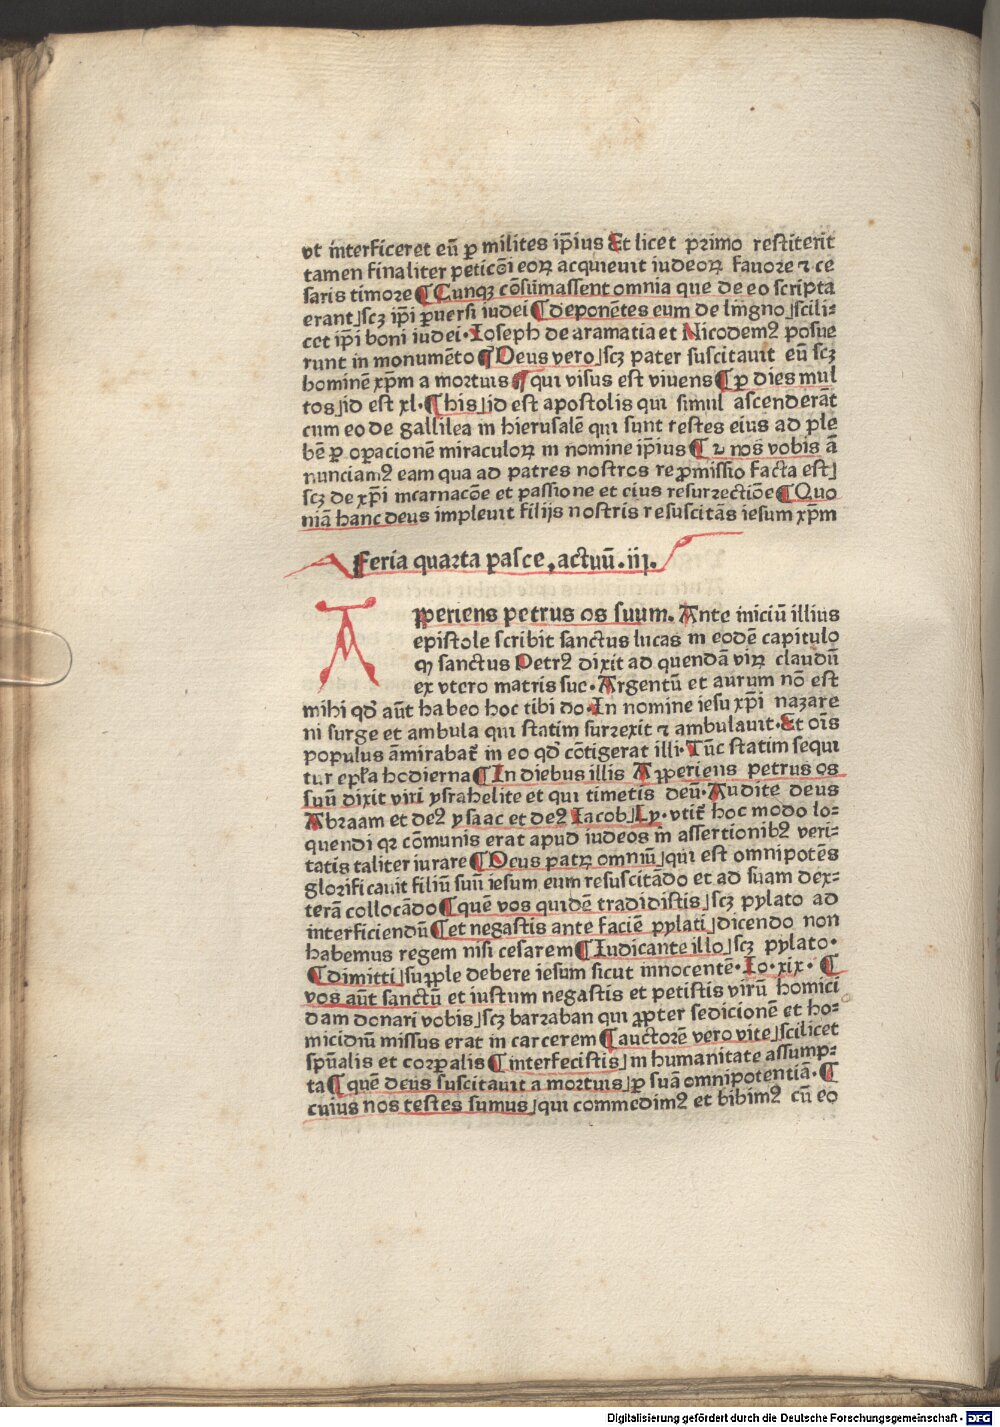 vt interficeret eū ꝑ milites ip̄ius Et licet primo restiterit
tamen finaliter peticōi eoꝝ acquieuit iudeoꝝ fauore ⁊ ce
saris timore ¶ Cunqꝫ cōsūmassent omnia que de eo scripta
erant⌋scꝫ ip̄i ꝑuersi iudei ¶ deponētes eum de lingno⌋scili⸗
cet ip̄i boni iudei· Ioseph de aramatia et Nicodemꝰ posue
runt in monumēto ¶ Deus vero⌋scꝫ pater suscitauit eū scꝫ
hominē xp̄m a mortuis ¶ qui visus est viuens ¶ ꝑ dies mul
tos⌋id est xl· ¶ his⌋id est apostolis qui simul ascenderāt
cum eo de gallilea in hierusalē qui sunt testes eius ad ple
bē ꝑ oꝑacionē miraculoꝝ in nomine ip̄ius ¶ ⁊ nos vobis ā
nunciamꝰ eam qua ad patres nostros reꝓmissio facta est⌋
scꝫ de xp̄i incarnacōe et passione et eius resurrectiōe ¶ Quo
niā hanc deus impleuit filijs nostris resuscitās iesum xp̄m
Feria quarta pasce, actuū·iij.
Apperiens petrus os suum. Ante iniciū illius
epistole scribit sanctus lucas in eodē capitulo
ꝙ sanctus Petrꝰ dixit ad quendā viꝝ claudū
ex vtero matris sue· Argentū et aurum nō est
mihi qd̄ aūt habeo hoc tibi do· In nomine iesu xp̄i nazare
ni surge et ambula qui statim surrexit ⁊ ambulauit· Et oīs
populus āmirabat̄ in eo qd̄ cōtigerat illi· Tūc statim sequi
tur ep̄la hodierna ¶ In diebus illis Apperiens petrus os
suū dixit viri ysrahelite et qui timetis deū· Audite deus
Abraam et deꝰ ysaac et deꝰ Iacob⌋Ly· vtit̄ hoc modo lo⸗
quendi qꝛ cōmunis erat apud iudeos in assertionibꝰ veri⸗
tatis taliter iurare ¶ Deus patꝝ omniū⌋qui est omnipotēs
glorificauit filiū suū iesum eum resuscitādo et ad suam dex⸗
terā collocādo ¶ quē vos quidē tradidistis⌋scꝫ pylato ad
interficiendū ¶ et negastis ante faciē pylati⌋dicendo non
habemus regem nisi cesarem ¶ Iudicante illo⌋scꝫ pylato·
¶ dimitti⌋supple debere iesum sicut innocentē· Io·xix· ¶
vos aūt sanctū et iustum negastis et petistis virū homici
dam donari vobis⌋scꝫ barraban qui ꝓpter sedicionē et ho⸗
micidiū missus erat in carcerem ¶ auctorē vero vite⌋scilicet
spūalis et corꝑalis ¶ interfecistis⌋in humanitate assump⸗
ta ¶ quē deus suscitauit a mortuis⌋ꝑ suā omnipotentiā· ¶
cuius nos testes sumus⌋qui commedimꝰ et bibimꝰ cū eo
Digitalisierung gefördert durch die Deutsche Forschungsgemeinschaft - DFG